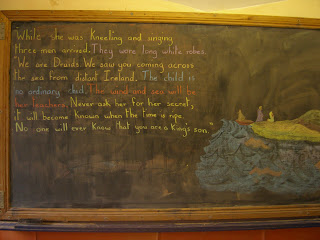 While she was kneeling and singing
three men arrived. They wore long white robes.
"We are Druids. We saw you coming across
the sea from distant Ireland. The child is
no ordinary child. The wind and sea will be
her teachers. Never ask her for her secret,
it will become known when the time is ripe.
No one will ever know that you are a King's son."